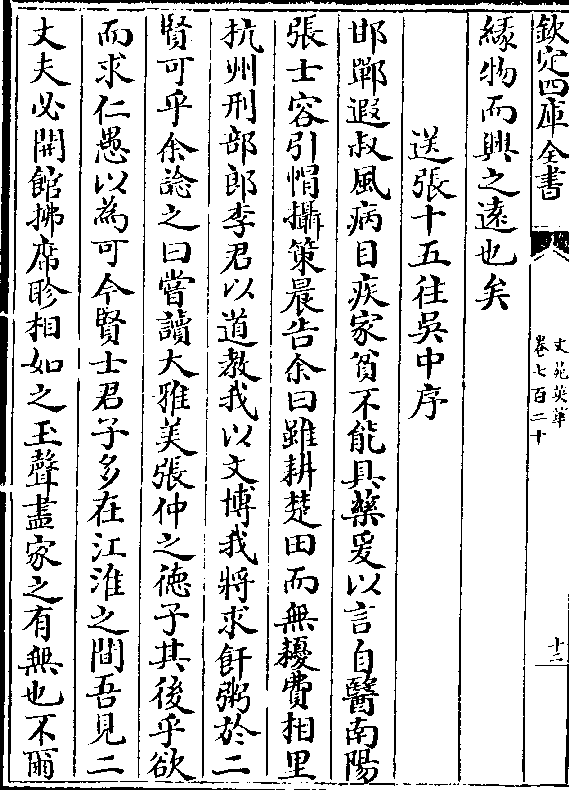 欽定四庫全書
文苑英華
卷七百二十
十二
緣物而興之遠也矣
送張十五往吳中序
邯鄲遐叔風病目疾家貧不能具藥爰以言自醫南陽
張士容引㡌攝策晨告余曰雖耕楚田而無擾費相里
杭州刑部郎李君以道教我以文博我將求飦粥於二
賢可乎余諗之曰嘗讀大雅美張仲之徳子其後乎欲
而求仁愚以為可今賢士君子多在江淮之間吾見二
丈夫必開館拂席眕相如之玉聲盡家之有無也不爾